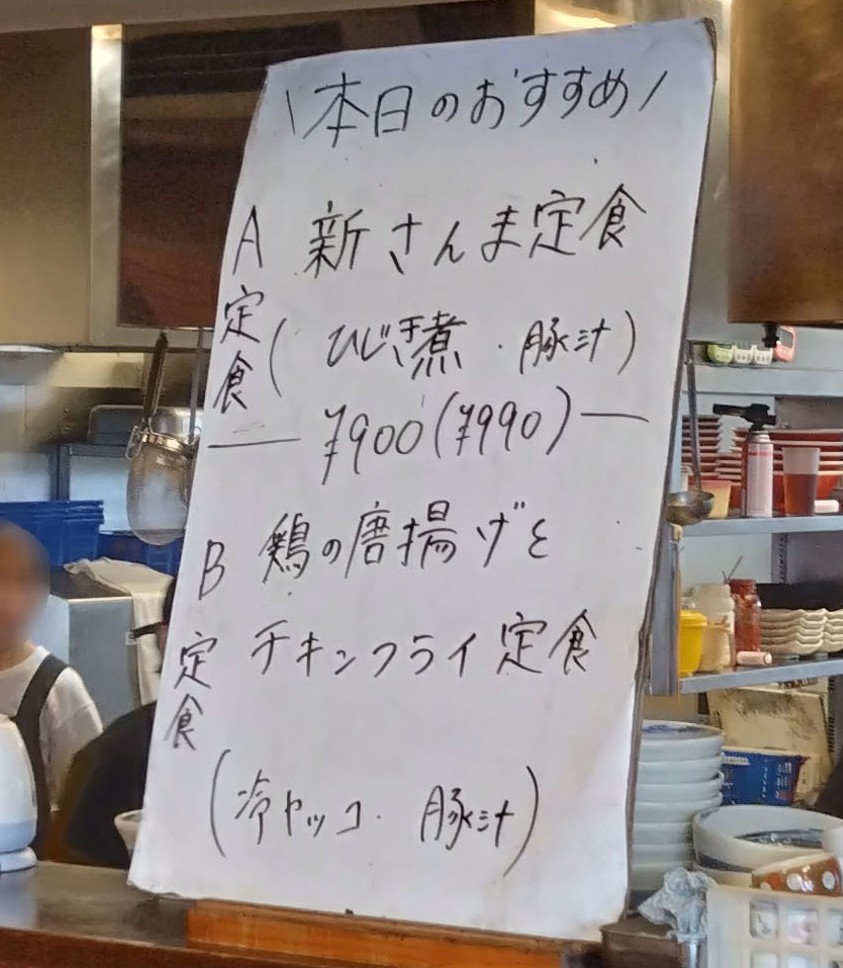 \本日のおすすめ/
A定食
新さんま定食
(ひじき煮・豚汁)
¥900(¥990)
B定食
鶏の唐揚げと
チキンフライ定食
(冷ヤッコ・豚汁)